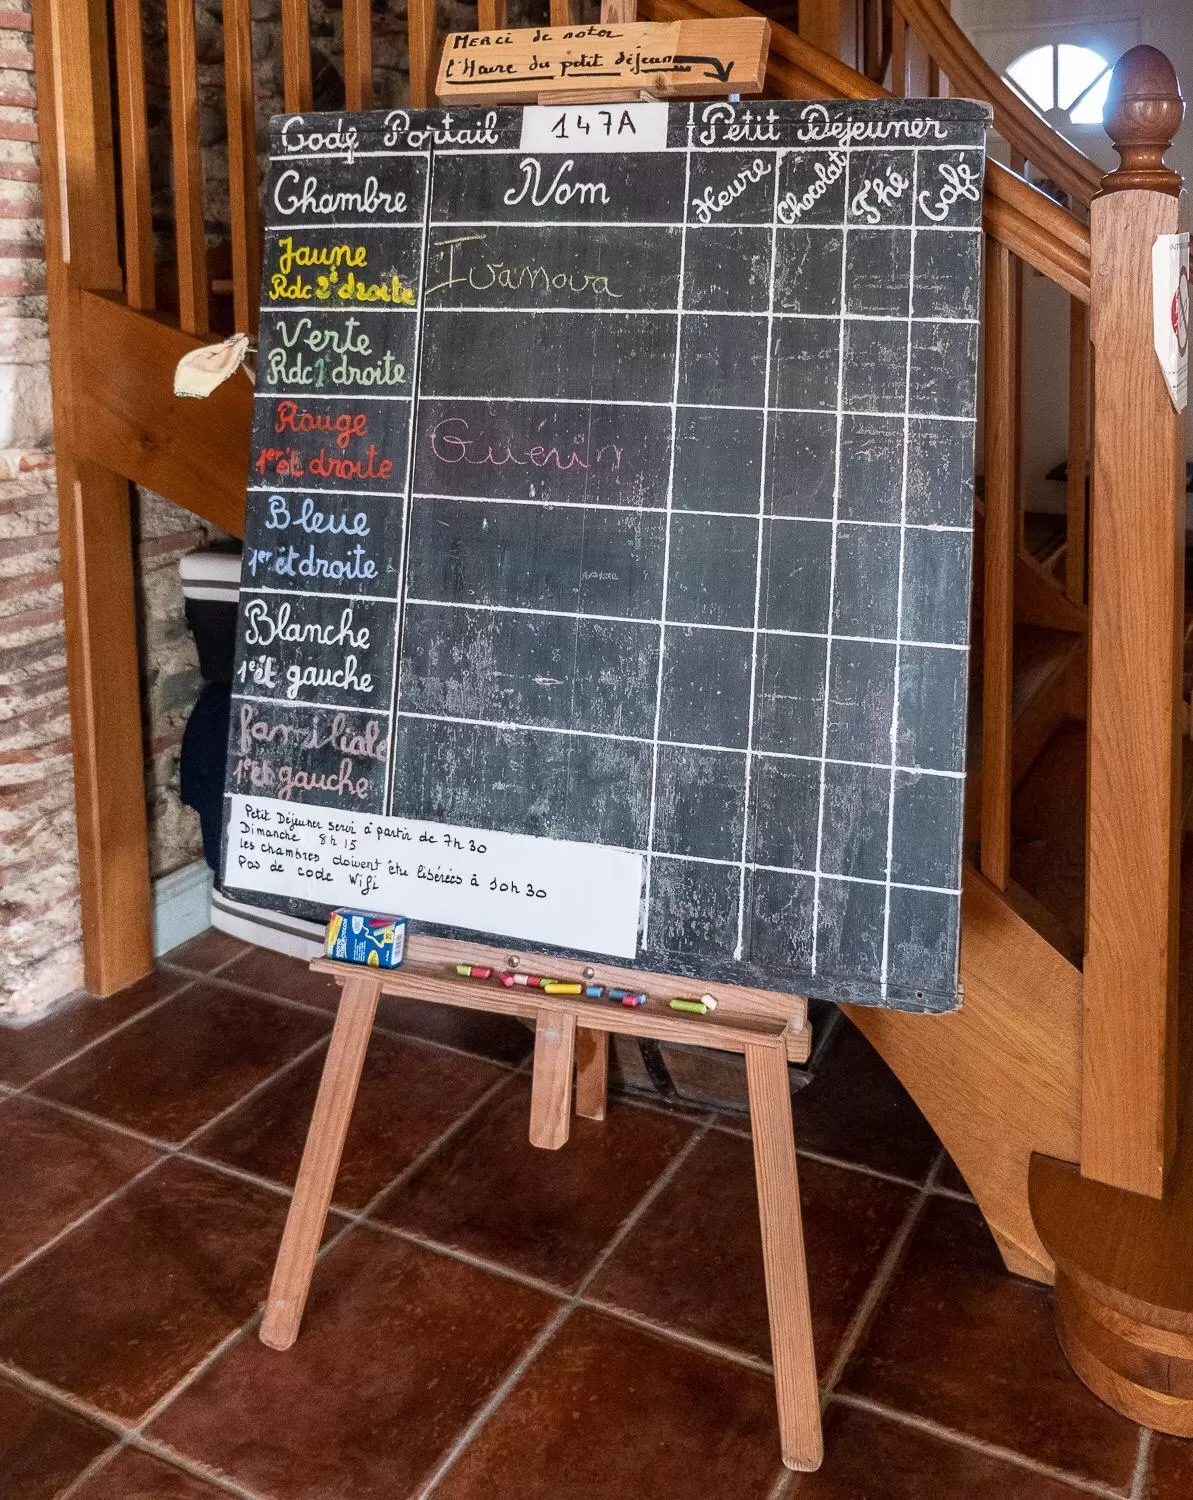 Merci de noter
l'Heure du petit déjeuner
Code Portail 147A Petit Déjeuner
Chambre Nom Heure Chocolat Thé Café
Jaune
Rdc 2è droite
Ivanova
Verte
Rdc 1è droite
Rouge
1er ét droite
Guérin
Bleue
1er ét droite
Blanche
1er ét gauche
familiale
1er ét gauche
Petit Déjeuner servi à partir de 7h30
Dimanche 8h15
les chambres doivent être libérées à 10h30
Pas de code Wifi